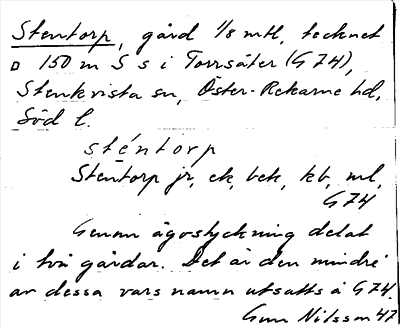 Stentorp, gård 1/8 mtl, tecknet
▫ 150 m S s i Torrsäter (G 74),
Stenkvista sn, Öster-Rekarne hd,
Söd l.
sténtorp
Stentorp jr, ek, bek, kb, ml,
G74
Genom ägostyckning delat
i två gårdar. Det är den mindre
av dessa vars namn utsatts å G74.
Gun Nilsson 47